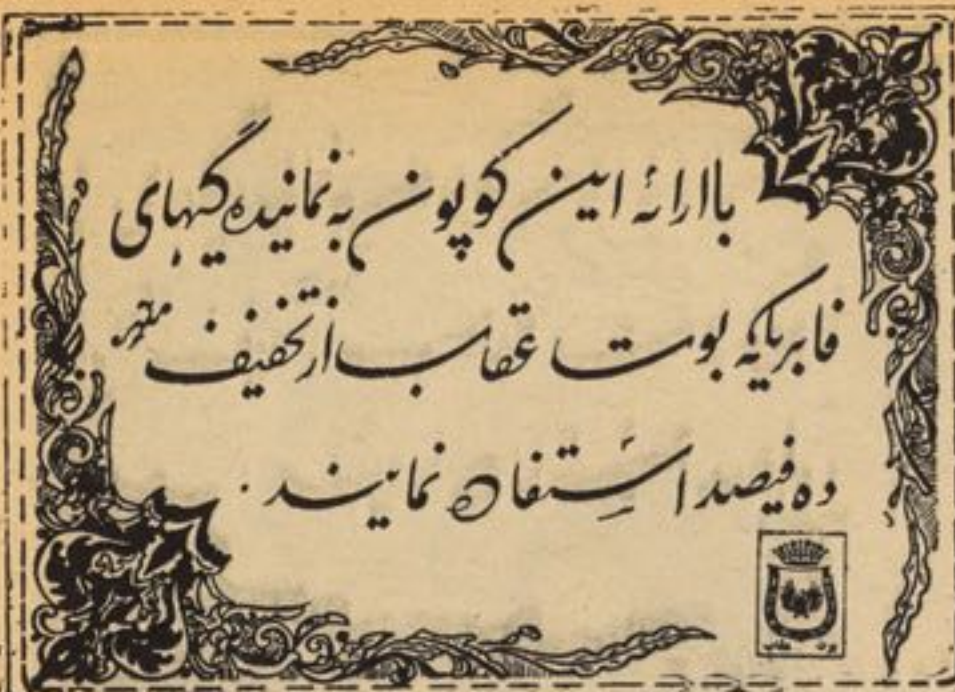 با ارائهٔ این کوپون به نمایندهگیهای
فابریکه بوت عقاب از تخفیف
ده فیصد استفاده نمایند.
بوت عقاب